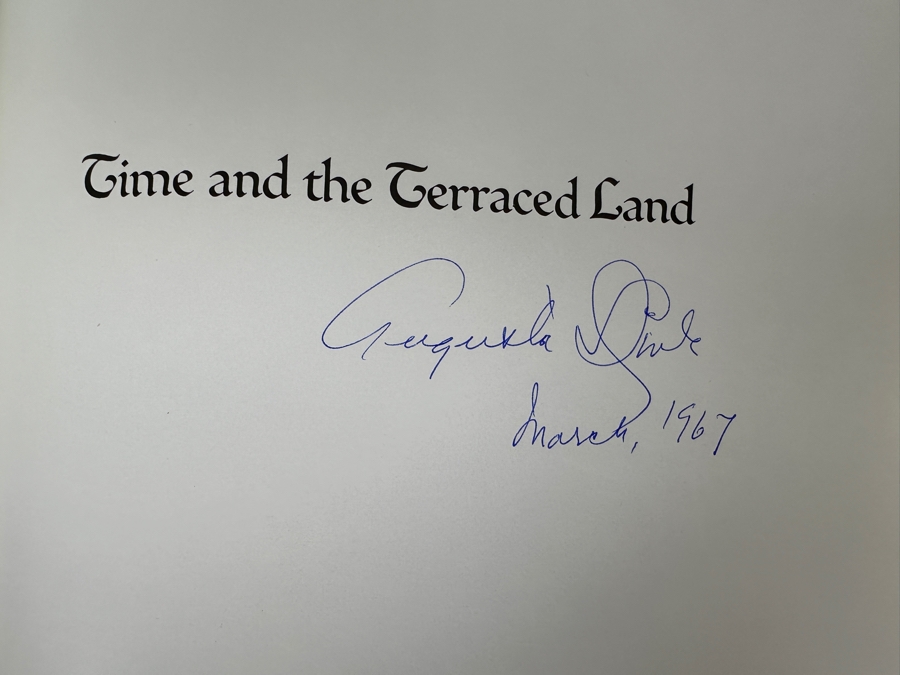 Time and the Terraced Land
Augusta Fink
March, 1967